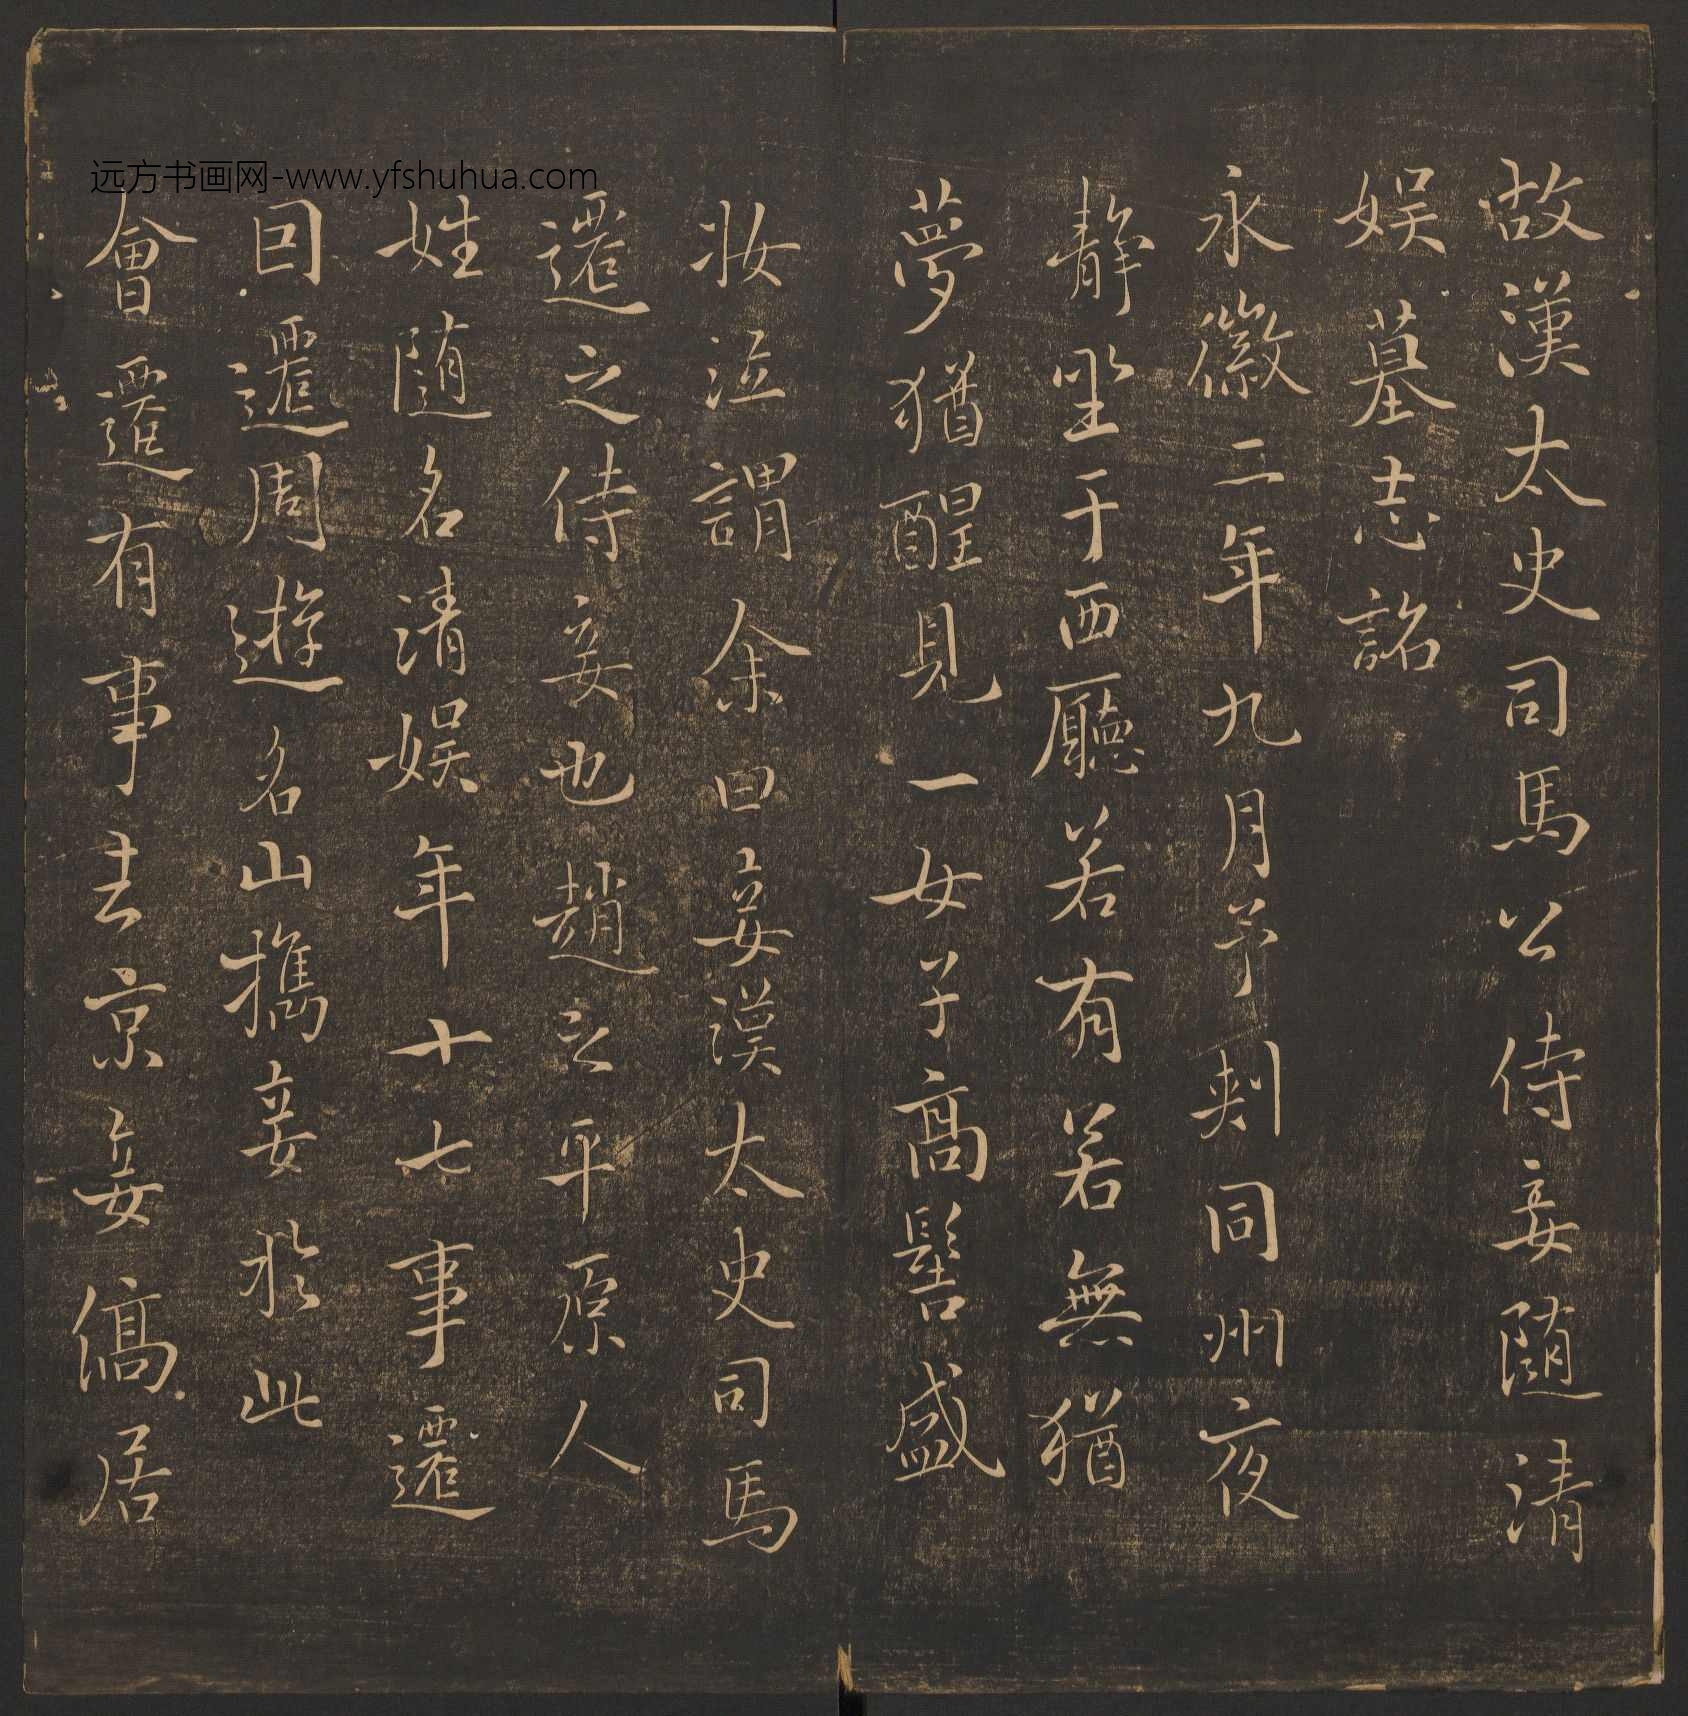 故漢太史司馬公侍妾随清
娱墓志銘
永徽二年九月予刺同州夜
静坐于西廳若有若無猶
夢猶醒見一女子高髻盛
妆泣謂余曰妾漢太史司馬
遷之侍妾也趙之平原人
姓随名清娱年十七事遷
因遷周遊名山擕妾於此
會遷有事去京妾僑居
远方书画网-www.yfshuhua.com